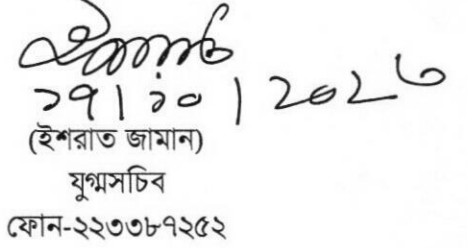 ১৭|১০|২০২৩
(ইশরাত জামান)
যুগ্মসচিব
ফোন-২২৩৩৮৭২৫২